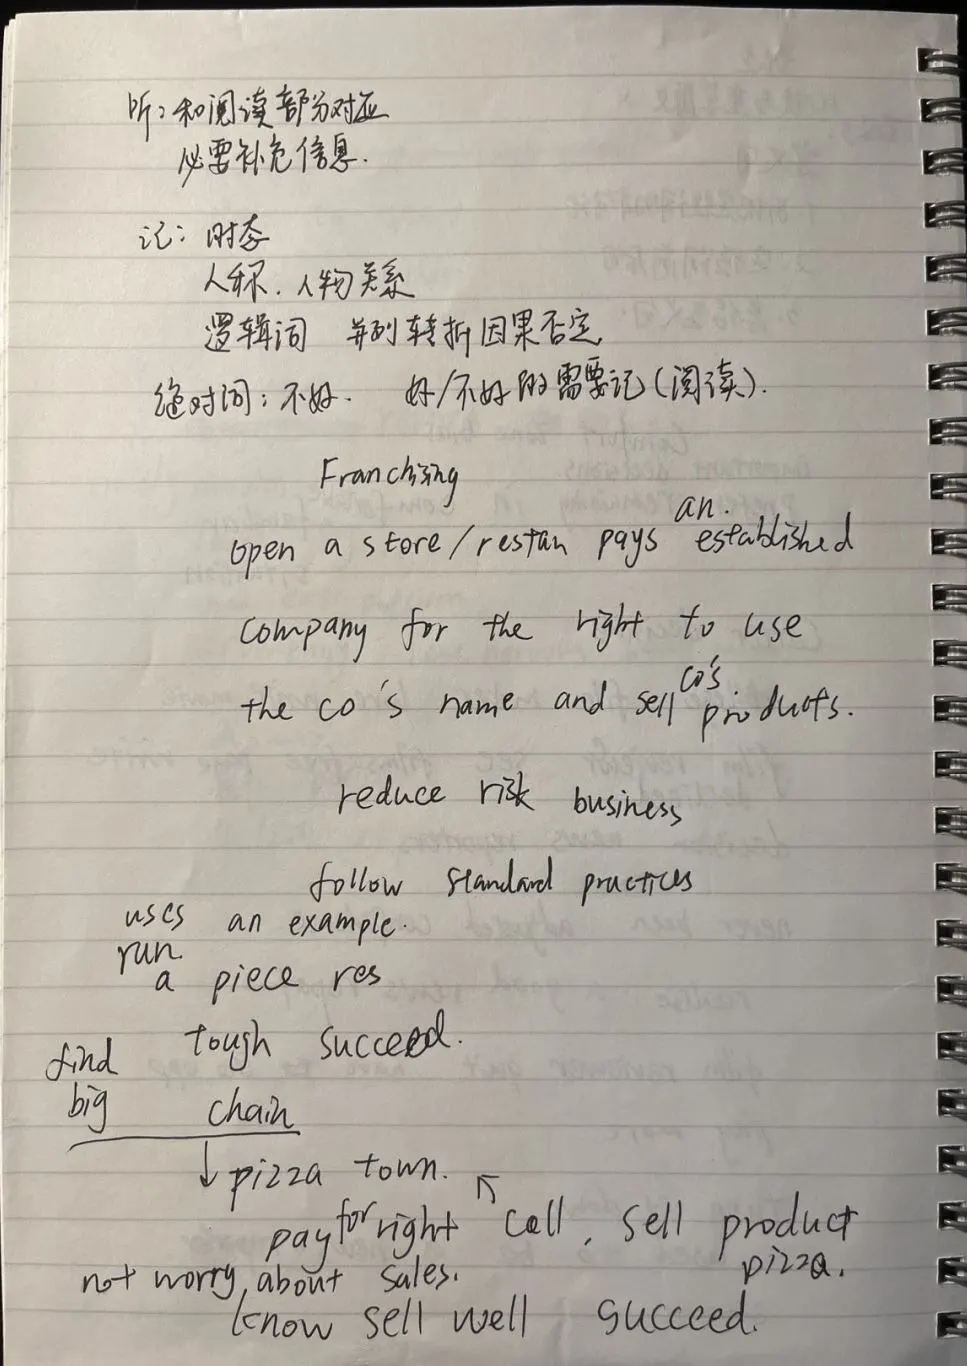 听：和阅读部分对应
必要补充信息.
记：时态
人称.人物关系
逻辑词 并列转折因果否定
绝对词：不好. 好/不好的需要记(阅读).
Franchising
an.
open a store/restan pays established
company for the right to use
co's
the co's name and sell products.
reduce risk business
follow standard practices
uses an example.
run
a piece res
tough succeed.
find
big chain
↓pizza town.
pay for right ↖ call, sell product
pizza.
not worry about sales.
know sell well succeed.